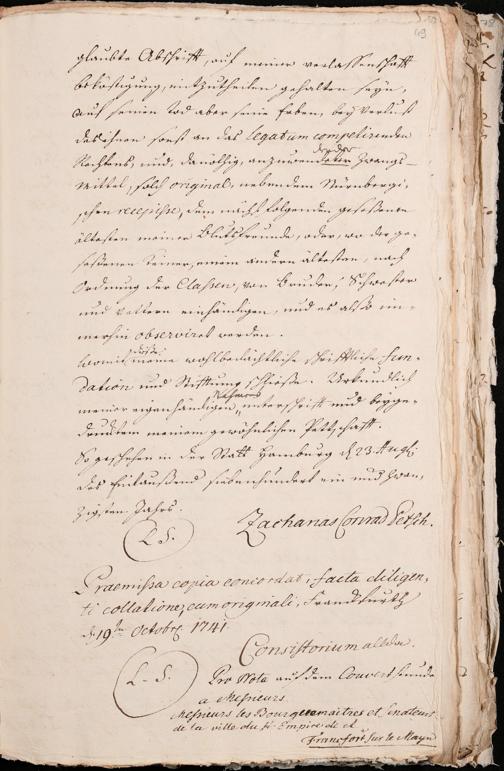 glaubte Abschrifft, auf meiner Verlassenschafft
beköstigung, mitzutheilen gehalten seyn,
auf seinen Tod aber seine Erben, bey Verlust
des ihnen sonst an das legatum competirenden
Rechtens, und, da nöthig, anzuwendender Zwangs-
mittel, solch original, nebenst dem Nürnbergi-
schen recepisse, dem nächst folgenden gesessenen
ältesten meiner Blutsfreunde, oder, wo der ge-
sessenen keiner, einem andern ältesten, nach
Ordnung der Classen, von Bruder, Schwester
und vettern einhändigen, und es also im-
merhin observiret werden.
Womit diese meine wohlbedächtliche schrifftliche fun-
dation und Stifftung schliesse. Uhrkundlich
meiner eigenhändigen Nahmens unterschrifft und beyge-
drucktem meinem gewöhnlichen Pettschafft.
So geschehen in der Statt Hamburg d. 23. Aug.
des Eintaußend siebenhundert ein und zwan-
zigsten Jahrs.
L. S. Zacharias Conrad
Praemissa copia concordat, facta diligen-
ti collatione, cum originali, Franckfurth
d. 19ten Octobr. 1741.
Consistorium allda.
L. S. Pro Nota auf dem Couvert stunde
a Messieurs
Messieurs les Bourguemaitres et Senateurs
de la ville du St. Empire de et
Francfort sur le Mayn